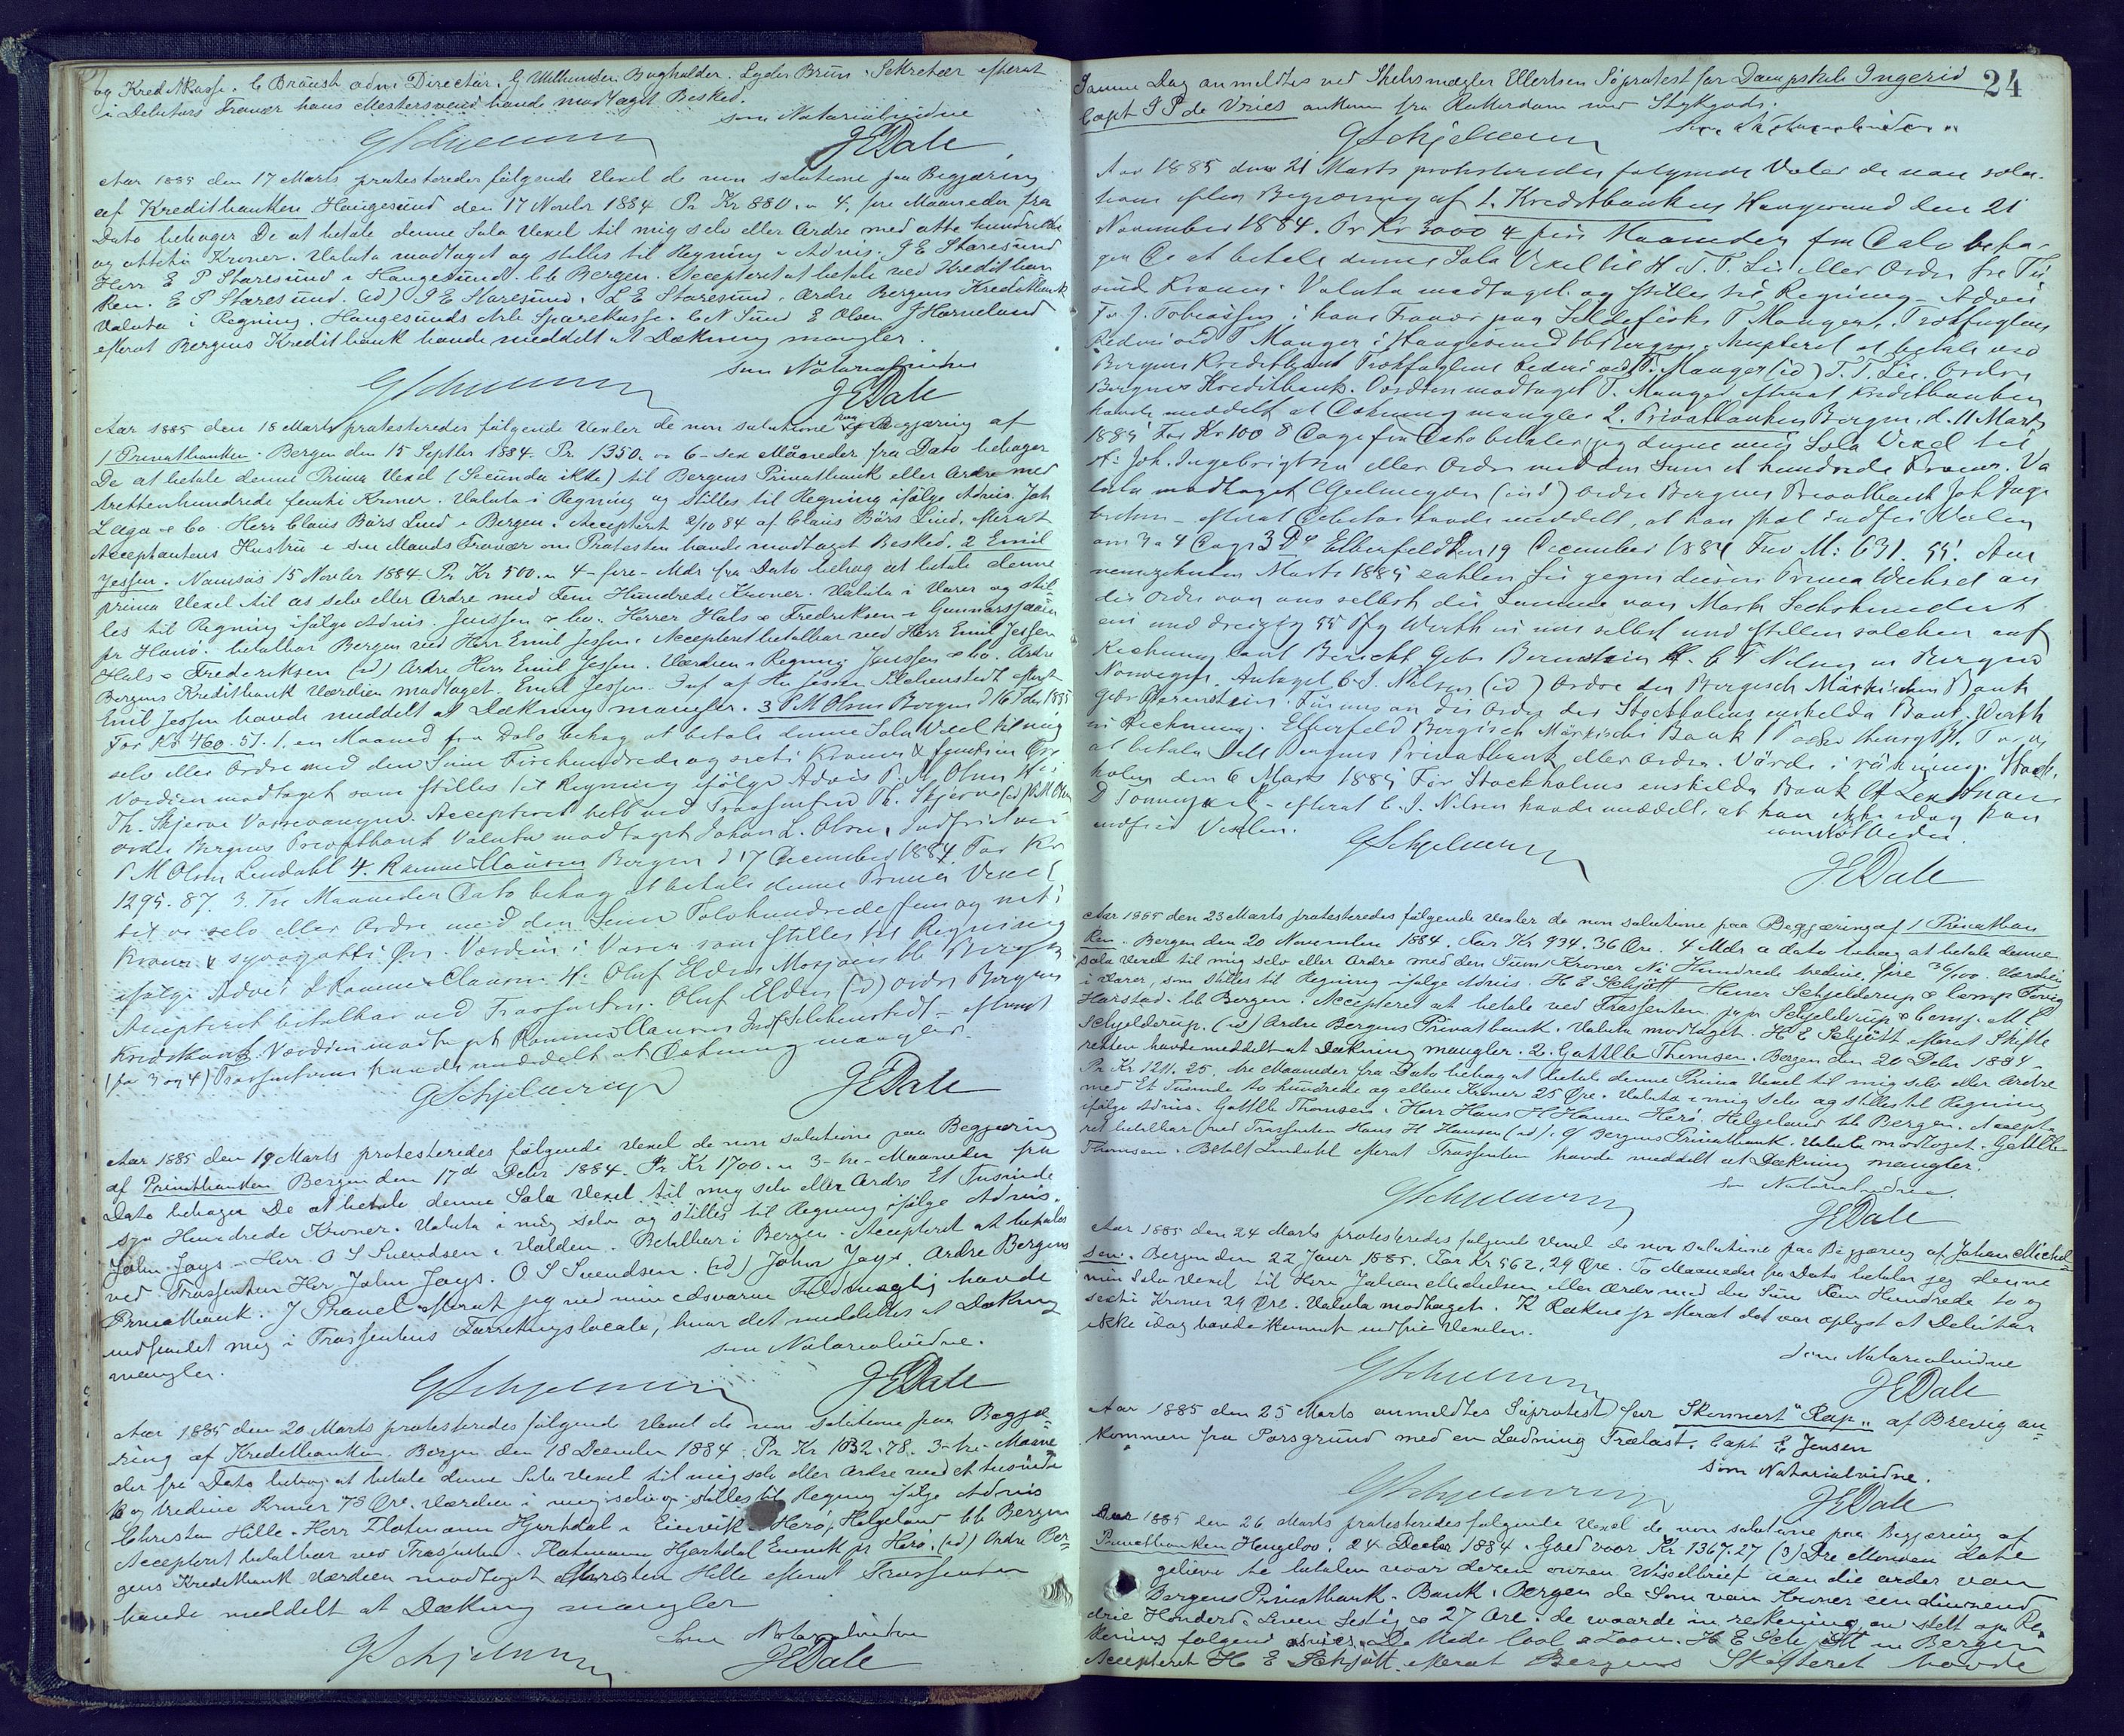 og Kreditkasse. C Brunst adm: Directør. G Willumsen Bogholder. Lyder Brun. Sekretær efterat
i Debitors Fravær hans Mestersvend havde modtaget Besked.
som Notarialvidne
GSchjelderup
JEDale
Aar 1885 den 17 Marts protesteredes følgende Vexel de non solutione paa Begjæring
af Kreditbanken Haugesund den 17 Novbr 1884 Pr Kr 880. " 4. fire Maaneder fra
Dato behager De at betale denne Sola Vexel til mig selv eller Ordre med otte hundrede
og otteti Kroner. Valuta modtaget og stilles til Regning - Advis. J E Staresund
Herr E P Staresund i Haugesund. bb Bergen. Accepteret at betale ved Kreditban
ken. E P Staresund. (id) J E Staresund. L E Staresund. Ordre Bergens Kreditbank
Valuta i Regning. Haugesunds Arb Sparekasse. C N Sund E Olsen J Korneland
efterat Bergens Kreditbank havde meddelt at Dækning mangler.
som Notarialvidne
GSchjelderup
JEDale
Aar 1885 den 18 Marts protesteredes følgende Vexler de non solutione paa Begjæring af
1 Privatbanken. Bergen den 15 Septbr 1884. Pr 1350. " 6 - sex Maaneder fra Dato behager
De at betale denne Prima Vexel (Secunda ikke) til Bergens Privatbank eller Ordre med
trettenhundrede femti Kroner. Valuta i Regning og stilles til Regning ifølge Advis. Joh
Laga & Co. Herr Claus Börs Lind i Bergen. Accepteret 2/10 84 af Claus Börs Lind. efterat
Acceptantens Hustru i sin Mands Fravær om Protesten havde modtaget Besked. 2 Emil
Jessen. Namsos 15 Novbr 1884 Pr Kr 500. " 4 - fire - Mdr fra Dato behag at betale denne
prima Vexel til os selv eller Ordre med Fem Hundrede Kroner. Valuta i Varer og stil-
les til Regning ifølge Advis. Jenssen & Co. Herrer Hals & Fredriksen - Gunnarsjaaen
pr Havö. betalbar Bergen ved Herr Emil Jessen. Accepteret betalbar ved Herr Emil Jessen
Hals & Frederiksen (id) Ordre Herr Emil Jessen. Værdien i Regning Jenssen & Co. Ordre
Bergens Kreditbank Værdien modtaget. Emil Jessen. efterat
Emil Jessen havde meddelt at Dækning mangler. 3 P M Olsen Bergen d 16 1885
For Kr 460. 51. 1. en Maaned fra Dato behag at betale denne Sola Vexel til mig
selv eller Ordre med den Sum Firehundrede og sexti Kroner & femtien Øre
Værdien modtaget som stilles til Regning ifølge Advis P. M Olsen Hr
Th. Skjerve Vossevangen. Accepteret betb ved Trassenten Th. Skjerve (id) P M Olsen
ordre Bergens Privatbank Valuta modtaget Johan L. Olsen,
P M Olsen Lindahl 4. Ramm & Clausen Bergen d 17 December 1884. For Kr
1295. 87. 3. Tre Maaneder Dato behag at betale denne Prima Vexel
til os selv eller Ordre med den Sum Tolvhundrede fem og niti
Kroner & syvogotti Øre. Værdien i Varer som stilles til Regning
ifølge Advis L Ramm & Clausen Hr. Oluf Elden Mosjøen bb Bergen
Accepteret betalbar ved Trassenten. Oluf Elden (id) ordre Bergens
Kreditbank. Værdien modtaget Ramm & Clausen - efterat
(for 3 og 4) Trassenterne havde meddelt at Dækning mangler
GSchjelderup
JEDale
Aar 1885 den 19 Marts protesteredes følgende Vexel de non solutione paa Begjæring
af Privatbanken Bergen den 17d Decbr 1884. Pr Kr 1700. " 3 - tre - Maaneder fra
Dato behager De at betale denne Sola Vexel til mig selv eller Ordre Et Tusinde
syv Hundrede Kroner. Valuta i mig selv og stilles til Regning ifølge Advis.
John Joys - Herr O S Svendsen i Volden. Betalbar i Bergen. Accepteret at betales
ved Trassenten Herr John Joys. O. S Svendsen. (id) John Joys. Ordre Bergens
Privatbank. J Pravel efterat jeg ved min edsvorne Fuldmægtig havde
indfundet mig i Trassentens Forretningslocale, hvor det meddeltes at Dækning
mangler.
som Notarialvidne.
GSchjelderup
JEDale
Aar 1885 den 20 Marts protesteredes følgende Vexel de non solutione paa Begjæ-
ring af Kreditbanken. Bergen den 18 December 1884. Pr Kr 1032.78. 3 - tre - Maane
der fra Dato behag at betale denne Sola Vexel til mig selv eller Ordre med et tusinde
to og tredive Kroner 78 Øre. Værdien i mig selv og stilles til Regning ifølge Advis
Christen Hille. Herr Flatmann Hjartdal i Einvik Herö, Helgeland bb Bergen
Accepteret betalbar ved Trassenten. Flatmann Hjartdal Einvik pr Herö. (id) Ordre Ber-
gens Kreditbank Værdien modtaget Christen Hille efterat Trassenten
havde meddelt at Dækning mangler
som Notarialvidne
GSchjelderup
JEDale
24
Samme Dag anmeldtes ved Skibsmægler Ellertsen Søprotest for Dampskib Ingerid
Capt J P de Vries ankom fra Rotterdam med Stykgods.
som Notarialvidne
GSchjelderup
Aar 1885 den 21 Marts protesteredes følgende Vexler de non solu-
tione efter Begjæring af 1. Kreditbanken Haugesund den 21
November 1884. Pr Kr 3000 4 fire Maaneder fra Dato beha-
ger De at betale denne Sola Vexel til H. T. T. Lie eller Ordre tre Tu
sind Kroner. Valuta modtaget og stilles til Regning - Advis
Fr. J. Tobiassen i hans Fravær paa Sildefiske T Manger.
Rederi ved T Manger i Haugesund bb Bergen. Accepteret at betale ved
Bergens Kreditbank Rederi ved T. Manger (id) T. T. Lie. Ordre
Bergens Kreditbank. Værdien modtaget T. Manger efterat Kreditbanken
havde meddelt at Dækning mangler 2. Privatbanken Bergen. d. 11 Marts
1885 For Kr 100 8 Dage fra Dato betaler jeg denne min Sola Vexel til
Hr: Joh. Ingebrigtsen eller Ordre med den Sum et hundrede Kroner. Va
luta modtaget (id) ordre Bergens Privatbank Joh Inge
brigtsen - efterat Debitor havde meddelt, at han skal indfri Vexlen
om 3 a 4 Dage 3 do Elberfeld den 19 December 1884 Fur M: 631. 55. Am
neunzehnten Marts 1885 zahlen Sie gegen diesen Prima Wechsel an
die Ordre von uns selbst die Summe von Mark Sechshundert
ein und dreizig 55 Pfg Werth in uns selbst und stellen solchen auf
Rechnung laut Bericht Gebr Bernstein H. C. J Nilsen in Bergen
Norwegen. Antaget C. J. Nilsen (id) Ordre der Bergisch Märkischen Bank
Gebr Bernstein. Für uns an die Ordre der Stockholms enskilda Bank. Werth
in Rechnung. Elberfeld Bergisch Märkische Bank
at betala till Bergens Privatbank eller ordre. Värde i räkning. Stock-
holm den 6 Mars 1885 För Stockholms enskilda Bank
- efterat C. J. Nilsen havde meddelt, at han ikke idag kan
indfri Vexlen.
som Not Vidne
GSchjelderup
JEDale
Aar 1885 den 23 Marts protesteredes følgende Vexler de non solutione paa Begjæring af 1 Privatban
ken. Bergen den 20 November 1884. For Kr 934. 36 Øre. 4 Mdr a dato behag at betale denne
sola Vexel til mig selv eller Ordre med den Sum Kroner Ni Hundrede tredive, fire 36/100. Værdien
i Varer, som stilles til Regning ifølge Advis. H E Schjött Herrer Schjelderup & Comp
Harstad. bb Bergen. Accepteret at betale ved Trassenten. pr pr Schjelderup & Comp. M. C
Schjelderup. (id) Ordre Bergens Privatbank. Valuta modtaget. H E Schjött efterat Skifte
retten havde meddelt at Dækning mangler. 2. Gottlb Thomsen. Bergen den 20 Decbr 1884 -
Pr Kr 1211. 25. tre Maaneder fra Dato behag at betale denne Prima Vexel til mig selv eller Ordre
med Et Tusinde to hundrede og elleve Kroner 25 Øre. Valuta i mig selv og stilles til Regning
ifølge Advis. Gottlb Thomsen. Herr Hans H Hansen Herö. Helgeland bb Bergen. Accepte-
ret betalbar ved Trassenten Hans H Hansen (id). O/ Bergens Privatbank. Valuta modtaget. Gottlb
Thomsen. Betalt Lindahl efterat Trassenten havde meddelt at Dækning mangler.
som Notarialvidne.
GSchjelderup
JEDale
Aar 1885 den 24 Marts protesteredes følgende Vexel de non solutione paa Begjæring af Johan Michel-
sen. Bergen den 22 Janr 1885. For Kr 562, 29 Øre. To Maaneder fra Dato betaler jeg denne
min Sola Vexel til Herr Johan Michelsen eller Ordre med den Sum Fem Hundrede to og
sexti Kroner 29 Øre. Valuta modtaget. K efterat det var oplyst at Debitor
ikke idag havde kunnet indfrie Vexelen.
som Notarialvidne
GSchjelderup
JEDale
Aar 1885 den 25 Marts anmeldtes Søprotest for Skonnert "Rap" af Brevig an-
kommen fra Porsgrund med en Ladning Trælast. Capt E Jensen
som Notarialvidne.
GSchjelderup
JEDale
Aar 1885 den 26 Marts protesteredes følgende Vexel de non solutione paa Begjæring af
Privatbanken Hengeloo. 24 Decbr 1884. Goed voor Kr 1367.27 (3) Dre Monden dato
gelieve te betalen voor dezen onzen Wisselbrief aan die order van
Bergens Privatbank. Bank. Bergen de Som van Kroner een duizend
drie Honderd zeven Sestig & 27 Ore. de waarde in rekening en stelt op Re
kening folgend advies. H E Schjött in Bergen
Accepteret H E Schjött. efterat Bergens Skifteret havde